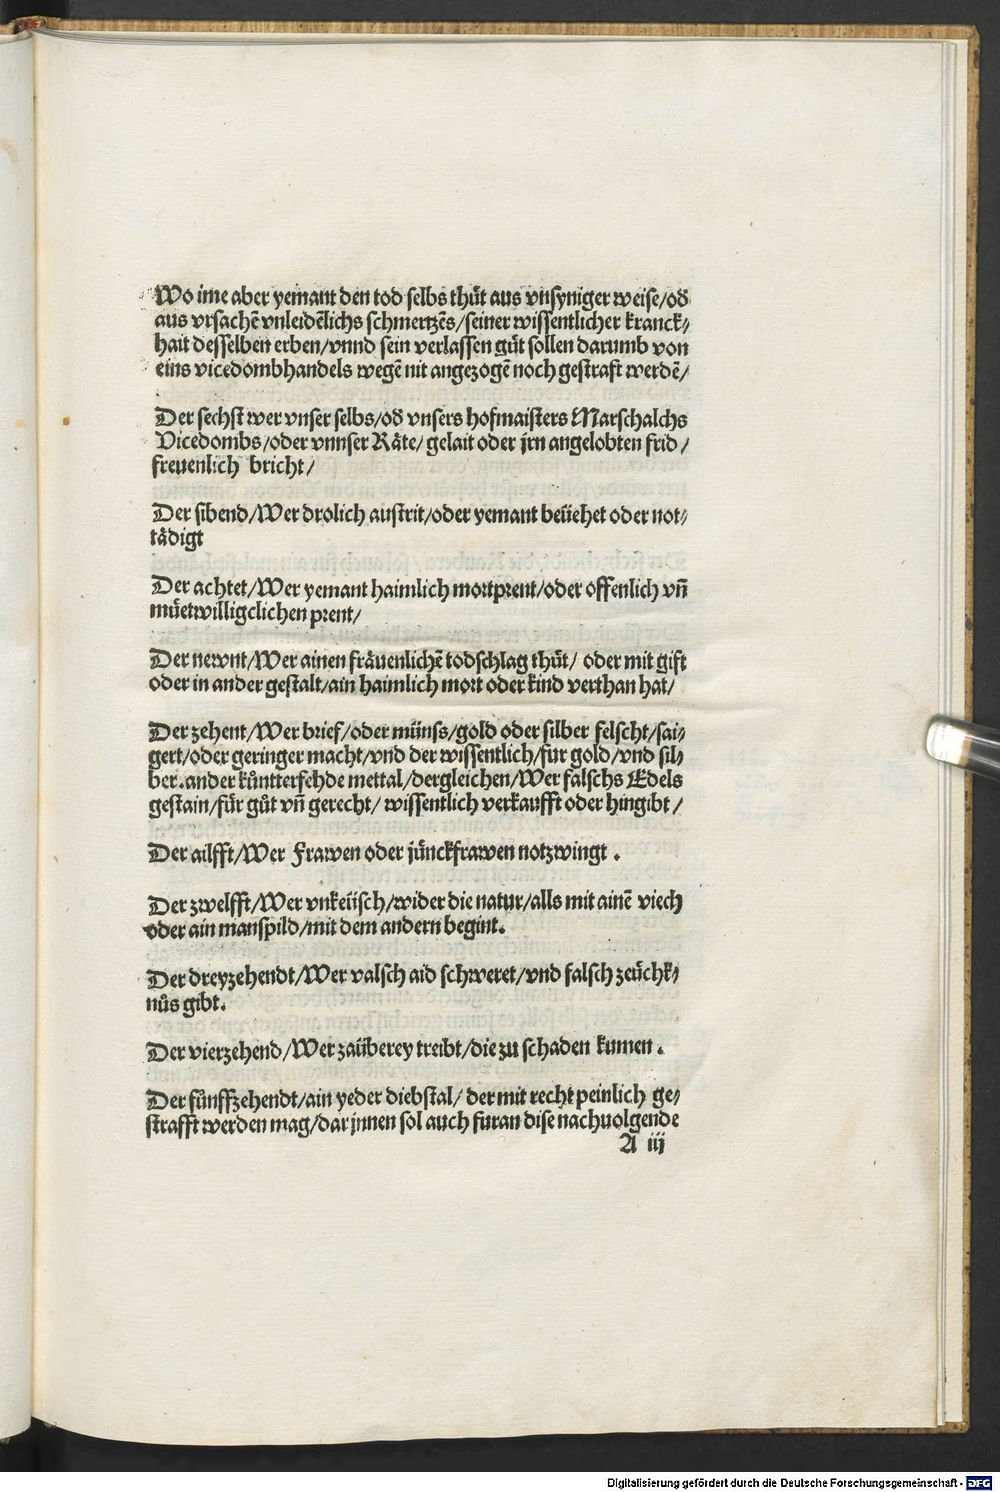 Wo ime aber yemant den tod selbs thůt aus vnsyniger weise/od᷒
aus vrsachē vnleidēlichs schmertzēs/seiner wissentlicher kranck⸗
hait desselben erben/vnnd sein verlassen gůt sollen darumb von
eins vicedombhandels wegē nit angezogē noch gestrafft werdē/
Der sechst wer vnser selbs/od᷒ vnsers hofmaisters Marschalchs
Vicedombs/oder vnnser Räte/ gelait oder jrn angelobten frid/
freuenlich bricht/
Der sibend/Wer drolich austrit/oder yemant beüehet oder not⸗
tädigt
Der achtet/Wer yemant haimlich mortprent/oder offenlich vn̄
müetwilligclichen prent/
Der newnt/Wer ainen fräuenlichē todschlag thůt/ oder mit gift
oder in ander gestalt/ain haimlich mort oder kind verthan hat/
Der zehent/Wer brief/oder münss/gold oder silber felscht/sai⸗
gert/oder geringer macht/vnd der wissentlich/für gold/vnd sil⸗
ber.ander kůntterfehde mettal/dergleichen/Wer falschs Edels
gestain/für gůt vn̄ gerecht/ wissentlich verkaufft oder hingibt/
Der ailfft/Wer Frawen oder jünckfrawen notzwingt .
Der zwelfft/Wer vnkeüsch/wider die natur/alls mit ainē viech
oder ain manspild/mit dem andern begint.
Der dreyzehendt/Wer valsch aid schweret/vnd falsch zeüchk⸗
nůs gibt.
Der vierzehend/Wer zaüberey treibt/die zu schaden kumen .
Der fünffzehendt/ain yeder diebstal/ der mit recht peinlich ge⸗
strafft werden mag/dar jnnen sol auch furan dise nachuolgende
A iij
Digitalisierung gefördert durch die Deutsche Forschungsgemeinschaft - DFG